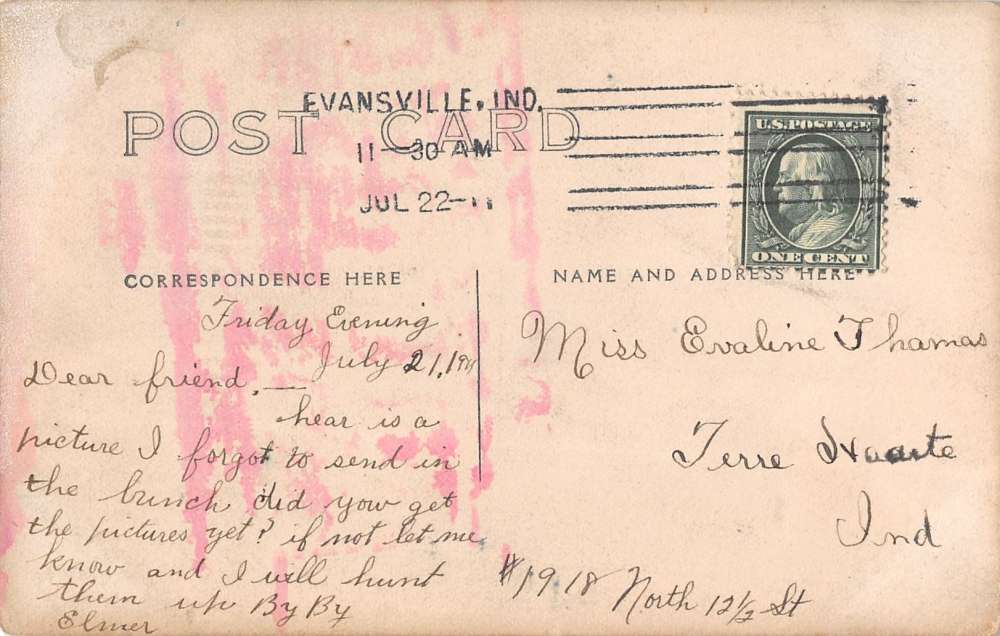 EVANSVILLE, IND.
POST CARD
11-30 AM
JUL 22-11
U.S. POSTAGE
ONE CENT
CORRESPONDENCE HERE
NAME AND ADDRESS HERE
Friday Evening
July 21, 1911
Dear friend. —
hear is a
picture I forgot to send in
the bunch did yow get
the pictures yet? if not let me
know and I will hunt
them up By By
Elmer
Miss Evaline Thamas
Terre Haute
Ind
#1918 North 12 1/2 St